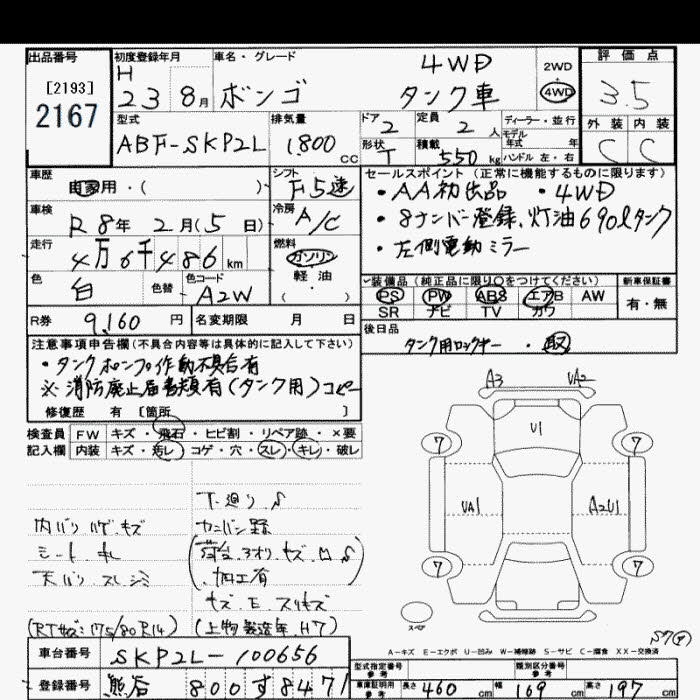 出品番号 初度登録年月 車名・グレード 4WD 2WD 評価点
[2193] H 23 8月 ボンゴ タンク車 4WD 3.5
2167
型式 排気量 ドア 2 定員 2 人 ディーラー・並行 外装 内装
ABF-SKP2L 1,800 CC 形状 T 積載 550 kg モデル年式 年 C C
ハンドル 左・右
車歴 シフト セールスポイント (正常に機能するものに限ります)
自家用・( ) F5速 ・AA初出品 ・4WD
車検 冷房 ・8ナンバー登録、灯油690ℓタンク
R8年 2月(5日) A/C ・左側電動ミラー
走行 燃料
4万6千486km ガソリン
軽・油
( )
色 色替 色コード 装備品 (純正品に限り○をつけてください) 新車保証書
白 A2W PS PW ABS エアB AW 有・無
SR ナビ TV カワ
R券 9,160円 名変期限 月 日 後日品
タンク用ロックキー・取
注意事項申告欄(不具合内容等は具体的に記入して下さい)
・タンクポンプ作動不具合有
※消防廃止届書類有(タンク用)コピー
修復歴 有 [箇所 ]
検査員記入欄 FW キズ・飛石・ヒビ割・リペア跡・×要
内装 キズ・汚レ コゲ・穴・スレ・キレ・破レ
A3 VA2
U1
7 7
VA1 A2U1
7 7
スペア
下廻りS
内バリ ハゲ キズ
シート キレ
天バリ スレ シミ
加工有
キズ、E、スリキズ
(RTサイズ 175/80R14) (上物製造年 H7)
A-キズ E-エクボ U-凹み W-補修跡 S-サビ C-腐食 XX-交換済
車台番号 SKP2L-100656
型式指定番号 参考 類別区分番号 参考
登録番号 熊谷 800す8471
車庫証明用 参考 長さ 460 cm 幅 169 cm 高さ 197 cm